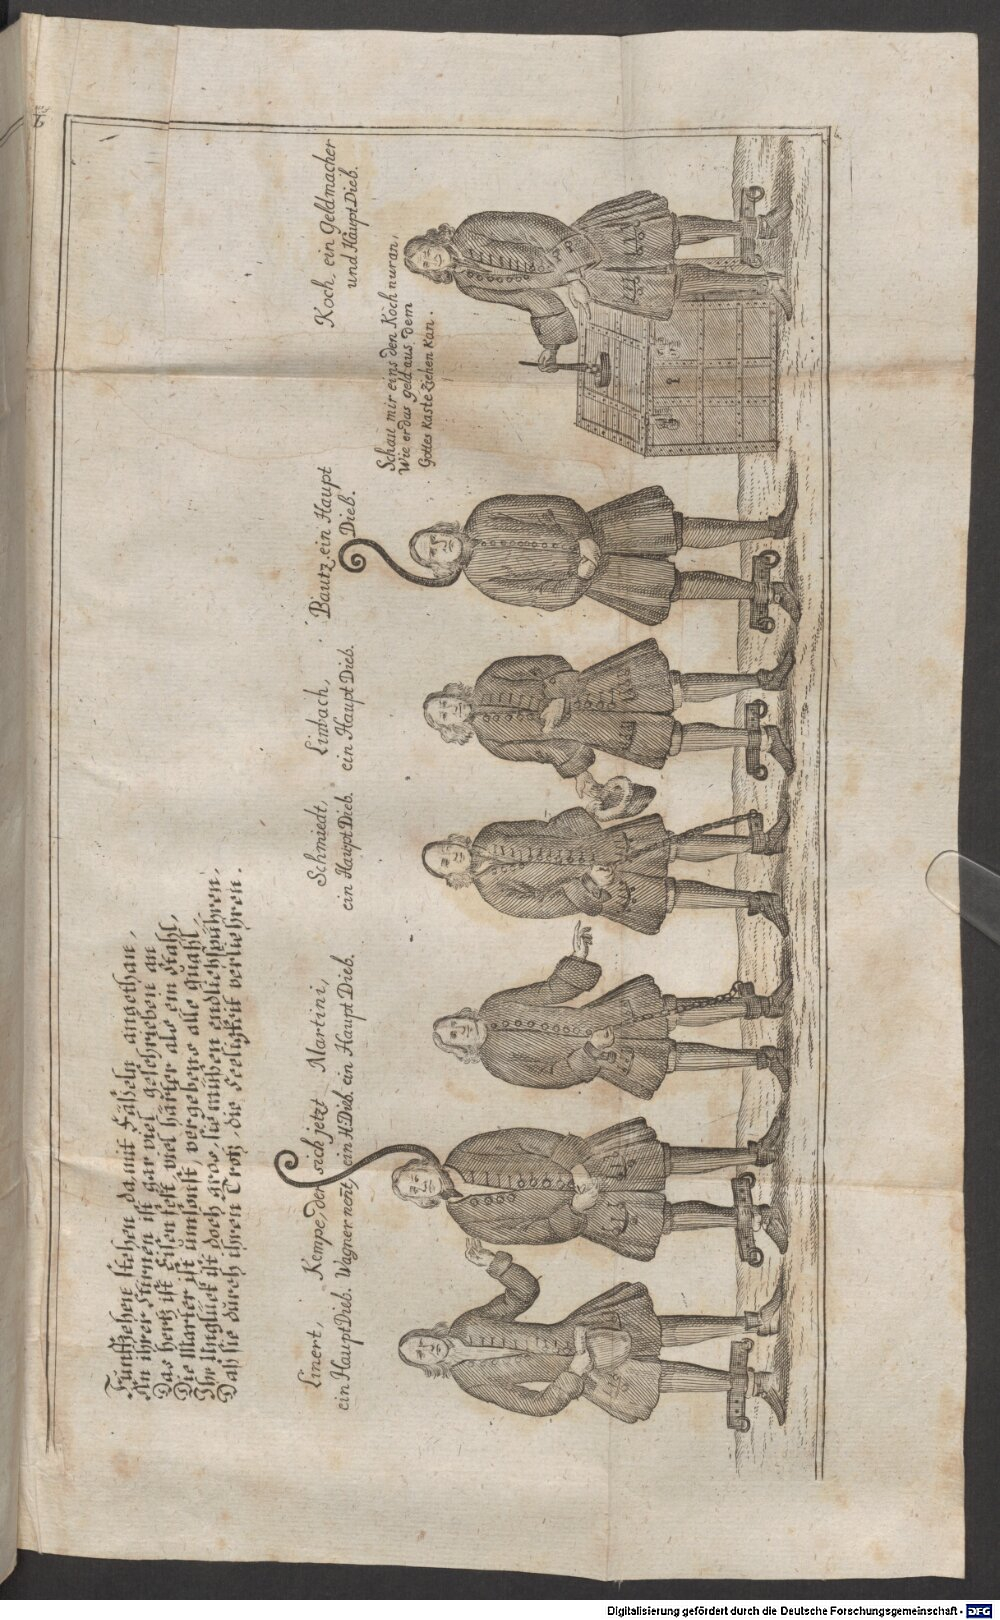 Fünffzehen stehen da, mit Fäßeln angethan,
An ihrer Stirnen ist gar viel geschrieben an
Das hertz ist Eisen fest, viel härter als ein Stahl,
Die Marter ist umsonst, vergebens alle Quahl,
Ihr Unglück ist doch gros, sie müßen endlich spühren,
Daß sie durch ihren Trotz, die Seeligkeit verliehren.
Linert,
ein Haupt Dieb.
Kempe, der sich jetzt
Wagner nent, ein H. Dieb.
Martini,
ein Haupt Dieb.
Schmiedt,
ein Haupt Dieb.
Limbach,
ein Haupt Dieb.
Bautz, ein Haupt
Dieb.
Koch, ein Geldmacher
und Haupt Dieb.
Schau mir eins den Koch nur an,
Wie er das geld aus dem
Gottes Kaste Ziehen Kan.
Digitalisierung gefördert durch die Deutsche Forschungsgemeinschaft - DFG